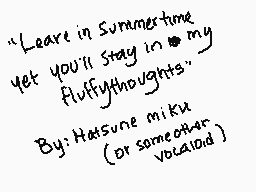 "Leave in summertime
yet you'll stay in my
fluffythoughts"
By: Hatsune miku
(or some other
vocaloid)